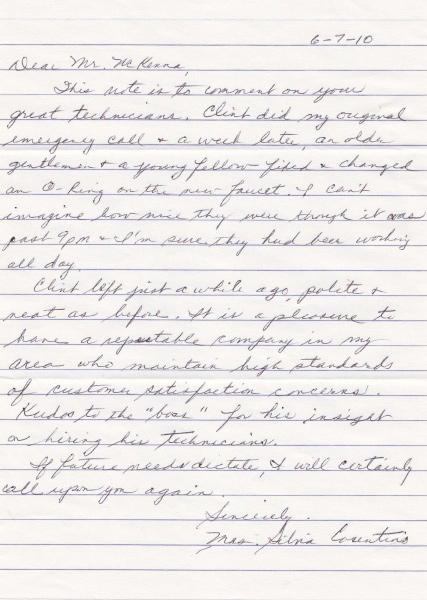 6-7-10
Dear Mr. McKenna,
This note is to comment on your
great technicians. Clint did my original
emergency call & a week later, an older
gentlemen & a young fellow fixed & changed
an O-Ring on the new faucet. I can't
imagine how nice they were though it was
past 9pm & I'm sure they had been working
all day.
Clint left just a while ago, polite &
neat as before. It is a pleasure to
have a reputable company in my
area who maintain high standards
of customer satisfaction concerns.
Kudos to the "boss" for his insight
on hiring his technicians.
If future needs dictate, I will certainly
call upon you again.
Sincerely,
Mrs. Silvia Cosentino